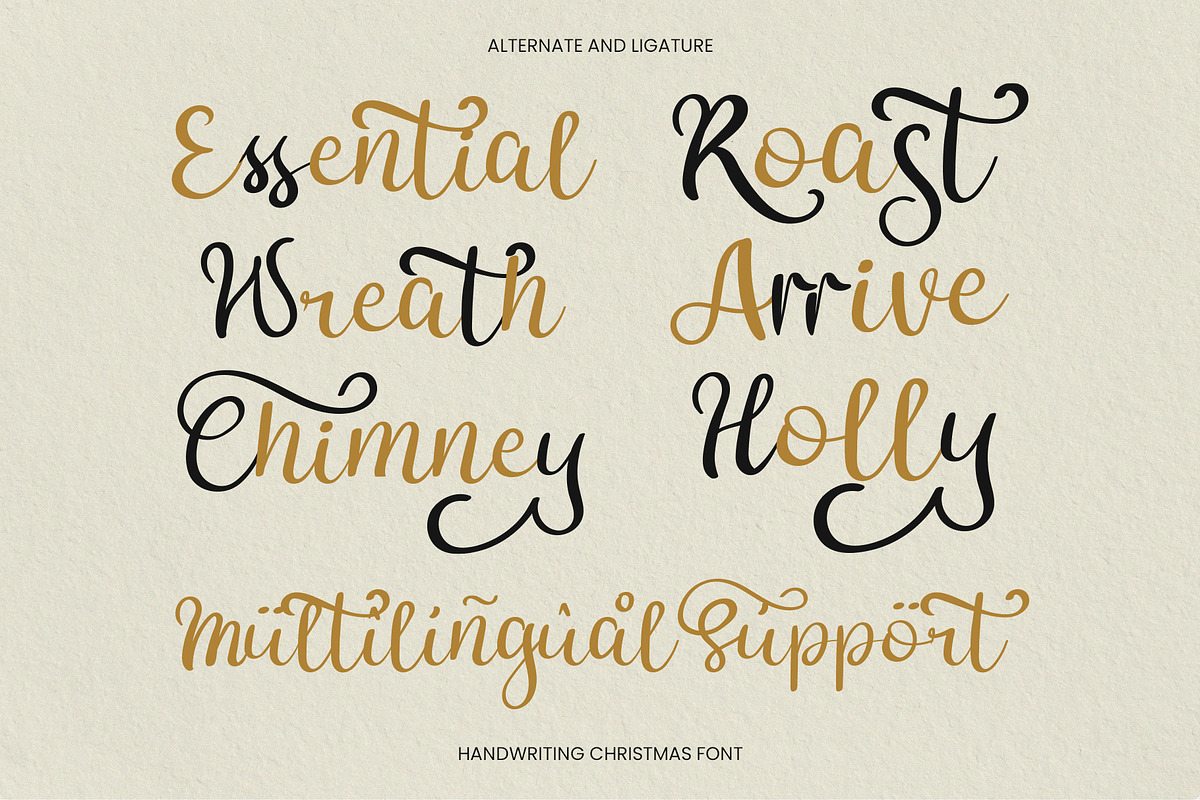 ALTERNATE AND LIGATURE
Essential Roast
Wreath Arrive
Chimney Holly
Mültìlíñgûål Súppört
HANDWRITING CHRISTMAS FONT